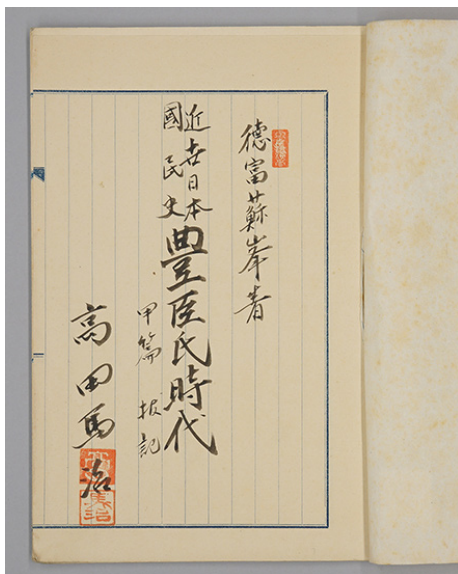 德富蘇峯著
近世日本
國民史
豊臣氏時代
甲篇 拔記
高田馬治